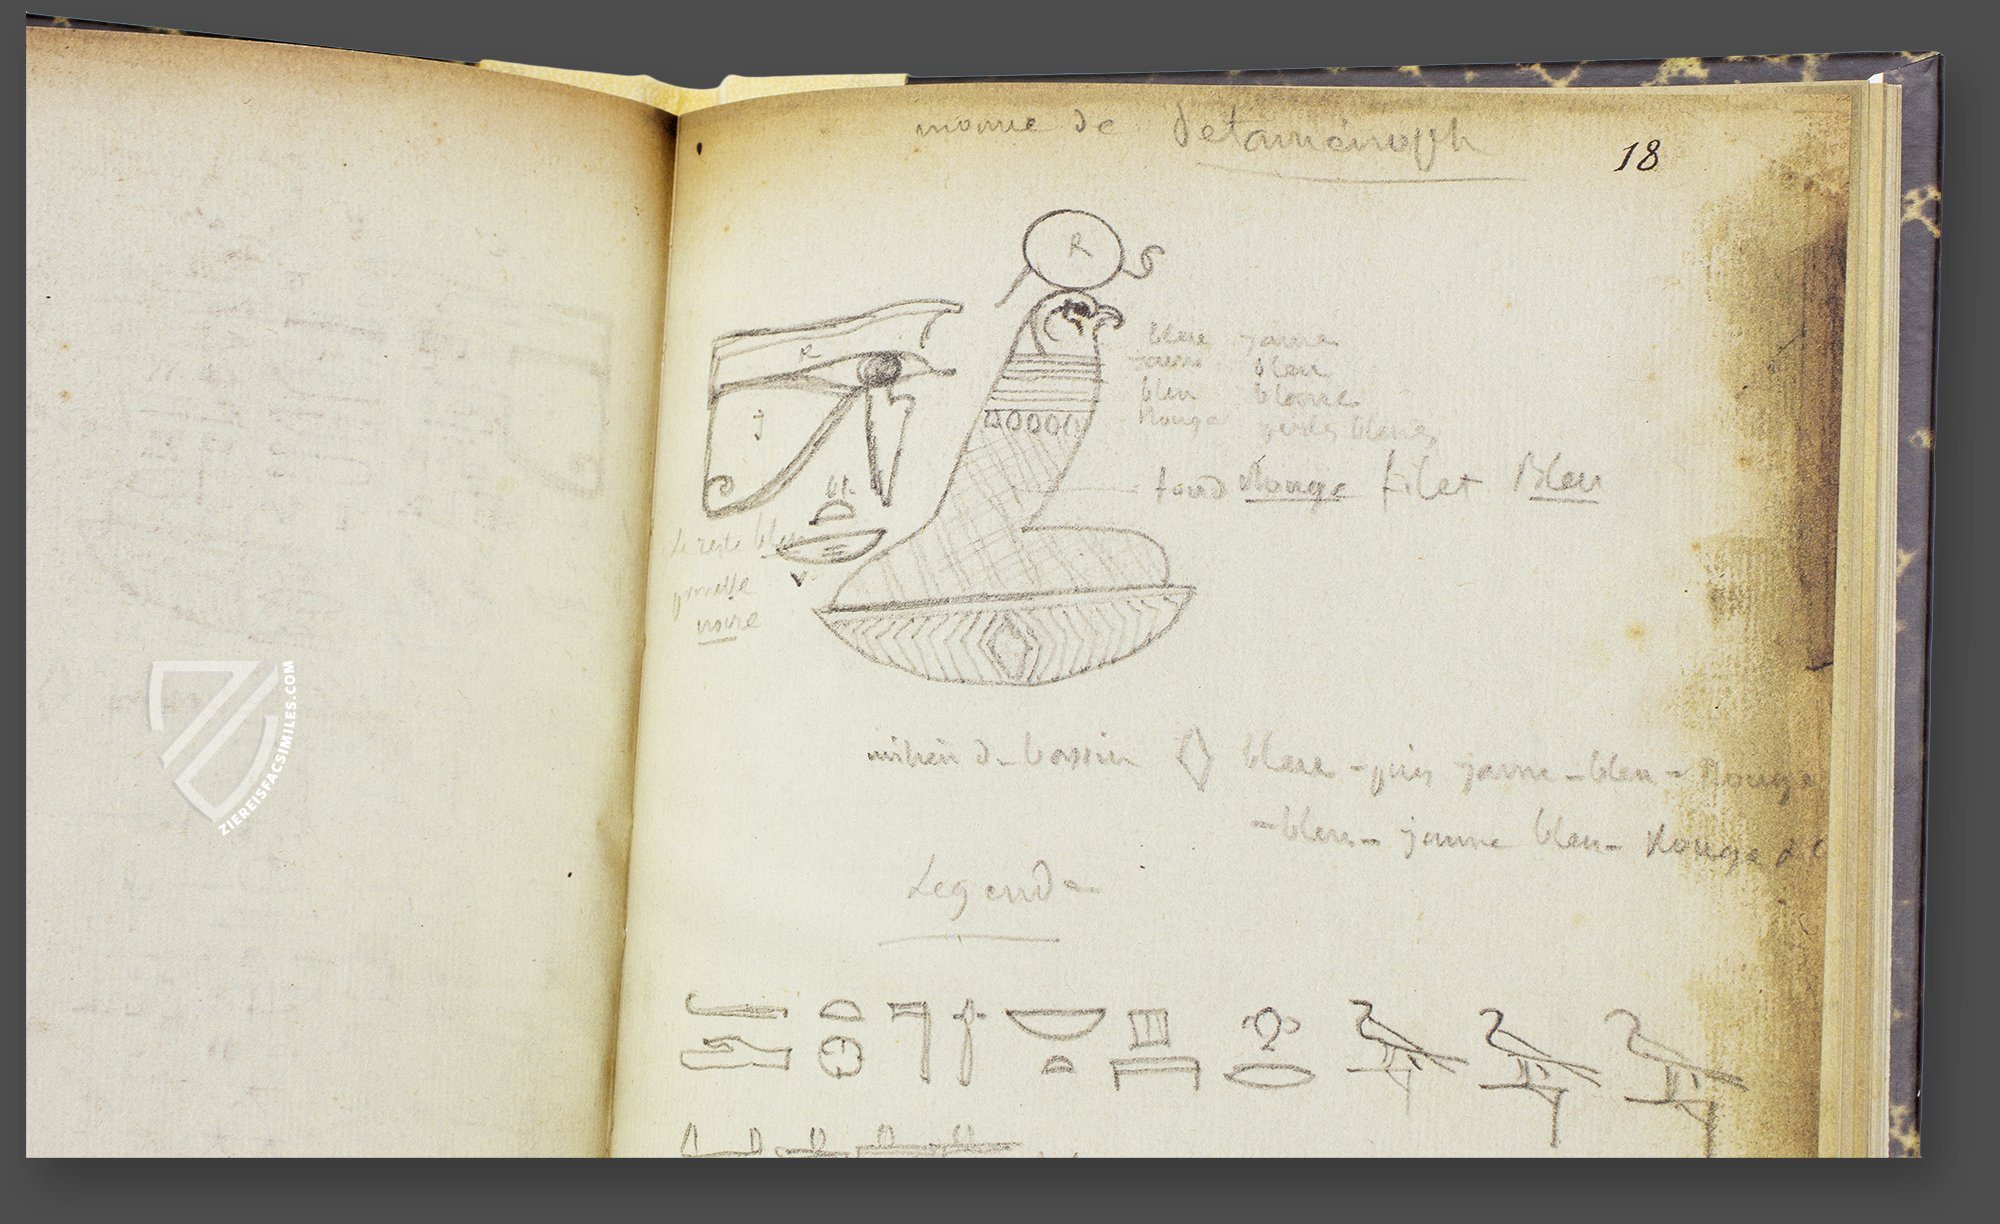 momie de Petaménoph
18
R
bleu jaune
jaune bleu
bleu blanc
Rouge perles bleues
R
J
fond Rouge filet Bleu
Le reste bleu
prunelle
noire
v.
milieu du bassin bleu - puis jaune - bleu - Rouge
- bleu - jaune bleu - Rouge &c
Legende
ZIEREISFACSIMILES.COM